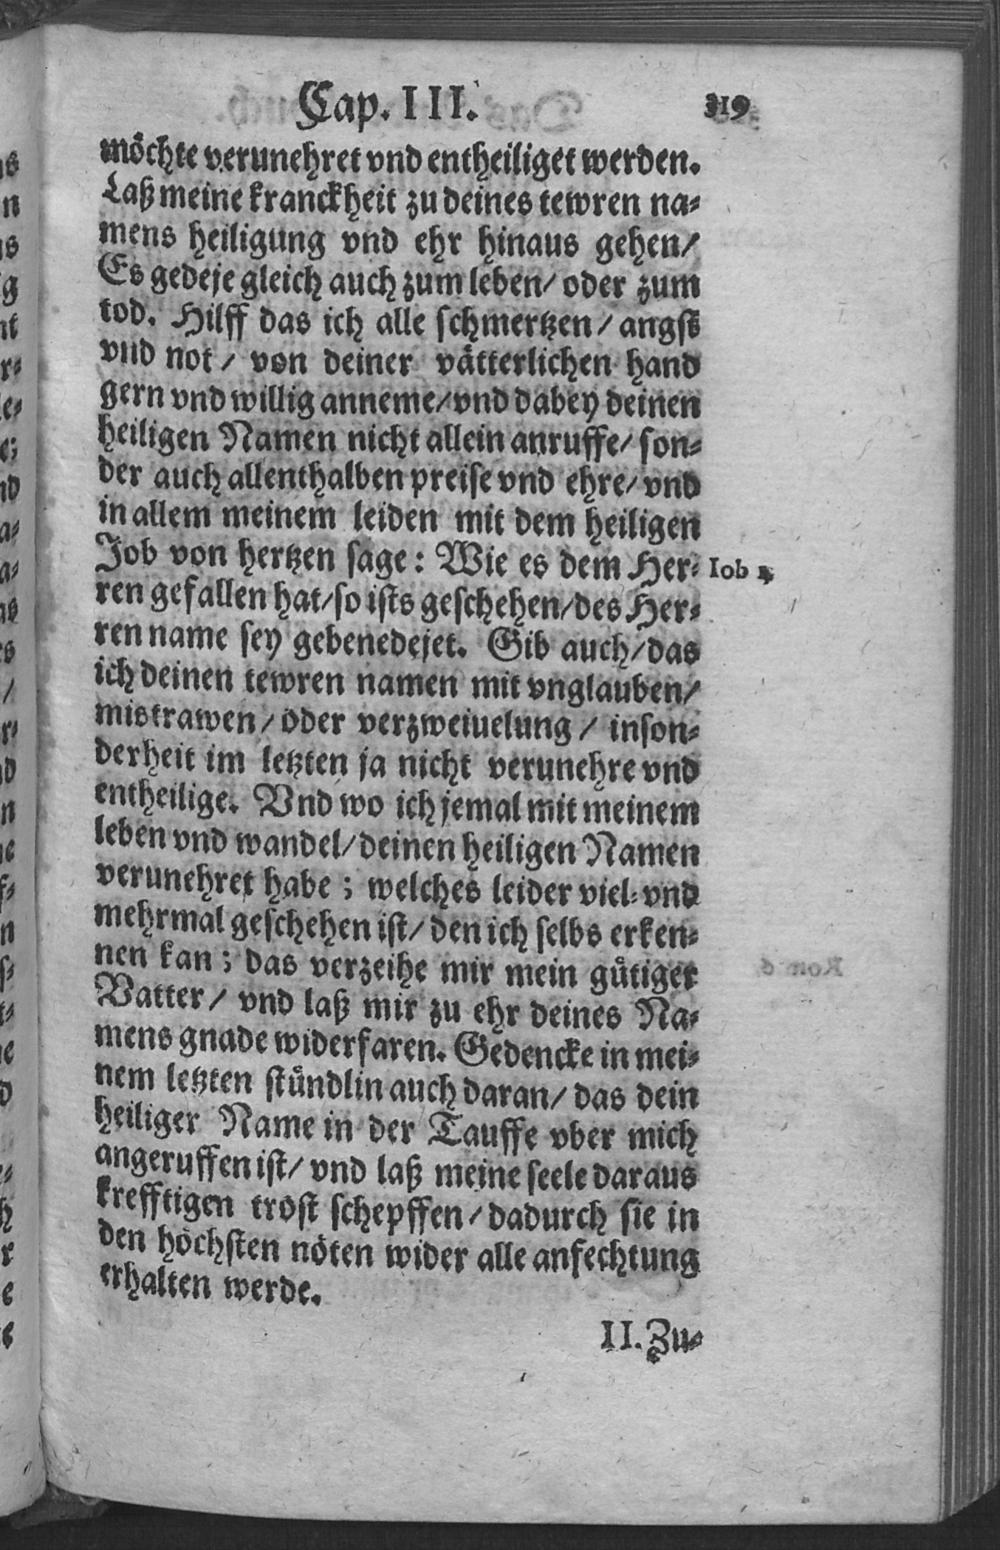 Cap. III. 319
möchte verunehret vnd entheiliget werden.
Laß meine kranckheit zu deines tewren na-
mens heiligung vnd ehr hinaus gehen/
Es gedeje gleich auch zum leben/ oder zum
tod. Hilff das ich alle schmertzen/ angst
vnd not/ von deiner vätterlichen hand
gern vnd willig anneme/ vnd dabey deinen
heiligen Namen nicht allein anruffe/ son-
der auch allenthalben preise vnd ehre/ vnd
in allem meinem leiden mit dem heiligen
Job von hertzen sage: Wie es dem Her- Iob 1.
ren gefallen hat/ so ists geschehen/ des Her-
ren name sey gebenedejet. Gib auch/ das
ich deinen tewren namen mit vnglauben/
mistrawen/ oder verzweiuelung/ inson-
derheit im letzten ja nicht verunehre vnd
entheilige. Vnd wo ich jemal mit meinem
leben vnd wandel/ deinen heiligen Namen
verunehret habe; welches leider viel- vnd
mehrmal geschehen ist/ den ich selbs erken-
nen kan; das verzeihe mir mein gütiger
Vatter/ vnd laß mir zu ehr deines Na-
mens gnade widerfaren. Gedencke in mei-
nem letzten stündlin auch daran/ das dein
heiliger Name in der Tauffe vber mich
angeruffen ist/ vnd laß meine seele daraus
krefftigen trost schepffen/ dadurch sie in
den höchsten nöten wider alle anfechtung
erhalten werde.
II. Zu-